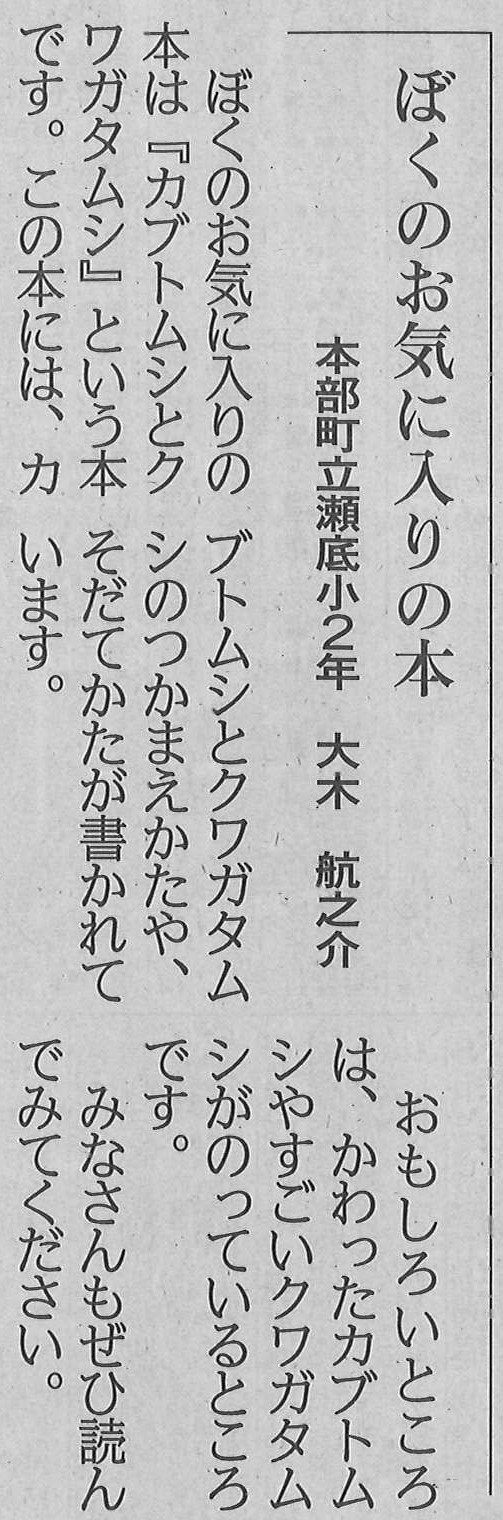 ぼくのお気に入りの本
本部町立瀬底小2年　大木　航之介
　ぼくのお気に入りの
本は『カブトムシとク
ワガタムシ』という本
です。この本には、カ
ブトムシとクワガタム
シのつかまえかたや、
そだてかたが書かれて
います。
　おもしろいところ
は、かわったカブトム
シやすごいクワガタム
シがのっているところ
です。
　みなさんもぜひ読ん
でみてください。